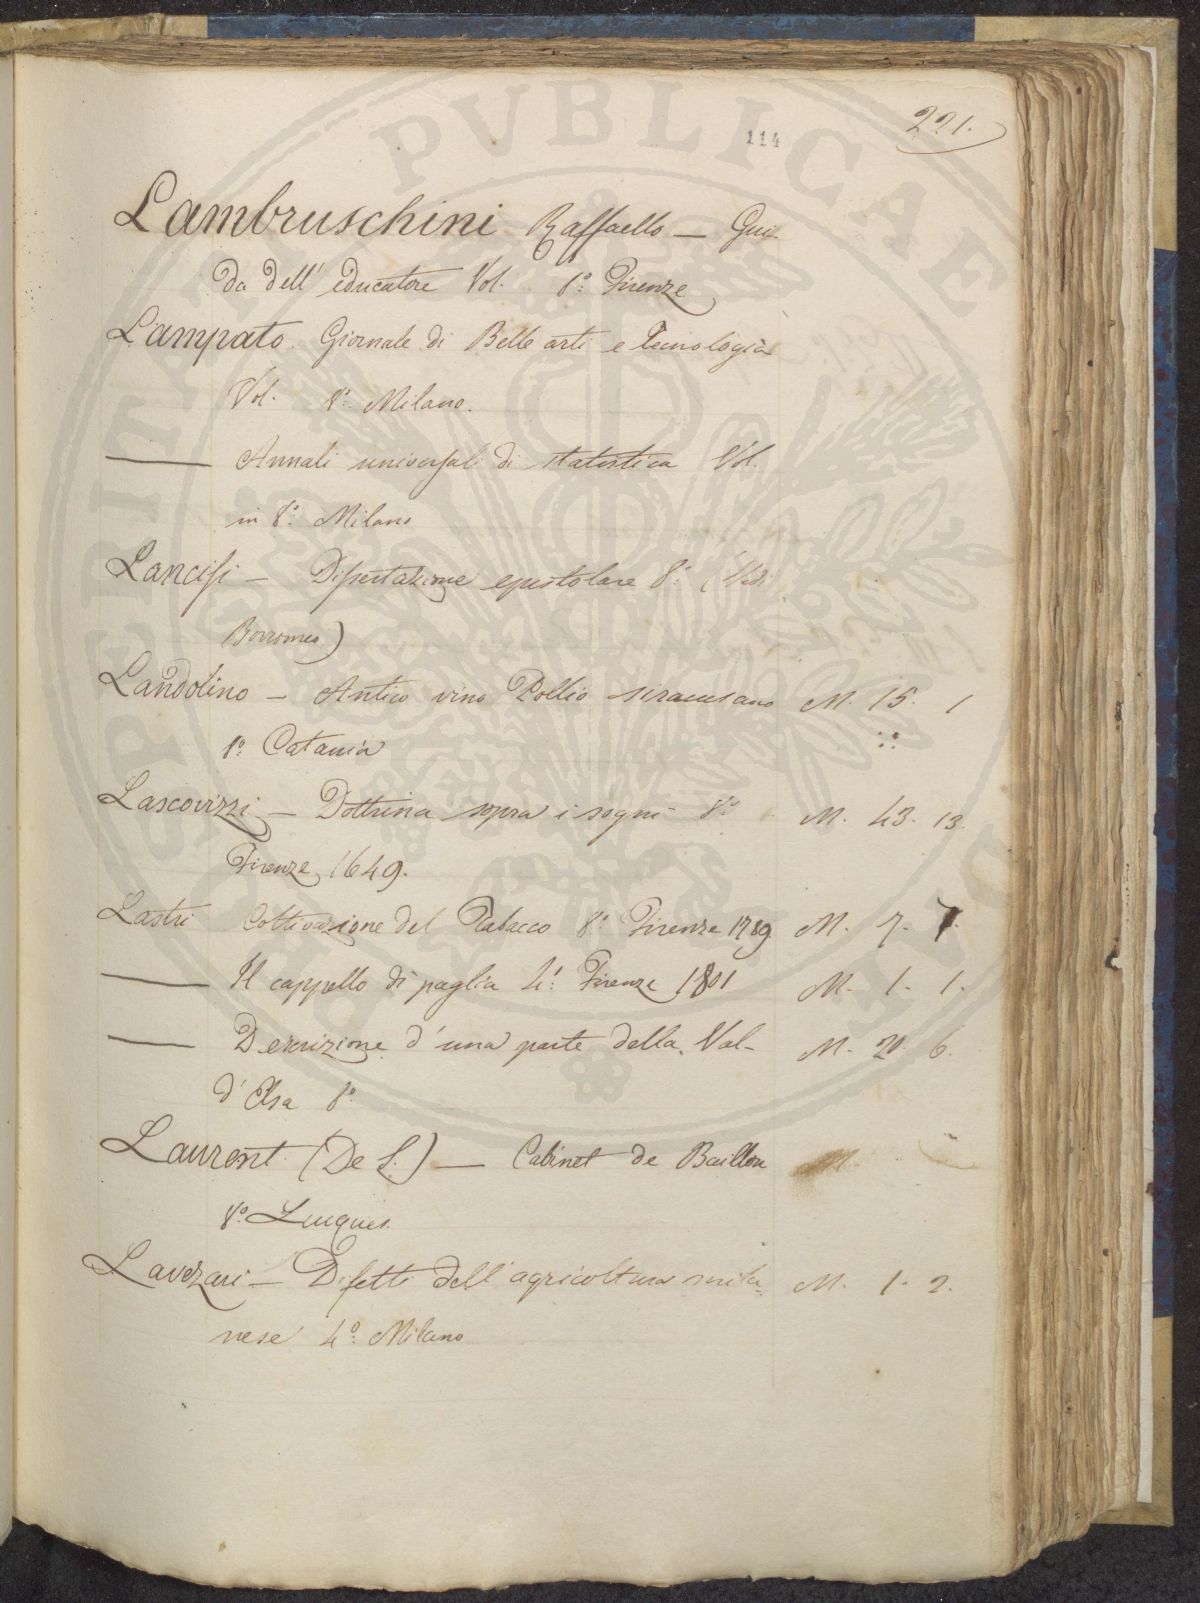 221.
114
Lambruschini Raffaello — Gui-
da dell' educatore Vol. 8.° Firenze
Lampato Giornale di Belle arti e Tecnologia
Vol. 8.° Milano.
— Annali universali di statistica Vol.
in 8.° Milano
Lancisi — Dissertazione epistolare 8.° (Vedi
Borromeo)
Landolino — Antico vino Pollio siracusano M. 15. 1
8.° Catania
Lascovizzi — Dottrina sopra i sogni 8.° M. 43. 13.
Firenze 1649.
Lastri Coltivazione del Tabacco 8.° Firenze 1789 M. 7. 7.
— Il cappello di paglia 4.° Firenze 1801 M. 1. 1.
— Descrizione d'una parte della Val- M. 20. 6.
d'Elsa 8.°
Laurent (De S.) — Cabinet de Baillou M
8.° Luques.
Lavezari — Difetti dell' agricoltura mila- M. 1. 2.
nese 4.° Milano
PVBLICAE